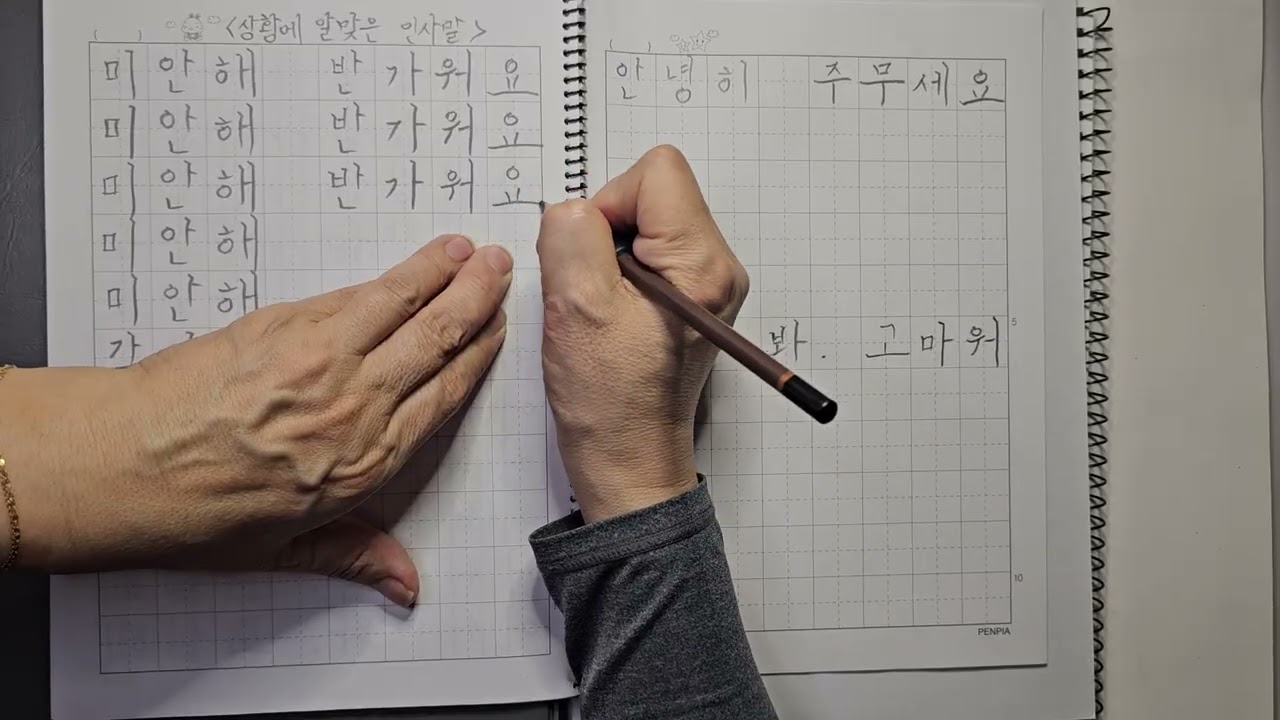 <상황에 알맞은 인사말>
미안해 반가워요
미안해 반가워요
미안해 반가워요
미안해
미안해
가
안녕히 주무세요
봐. 고마워
5
10
PENPIA